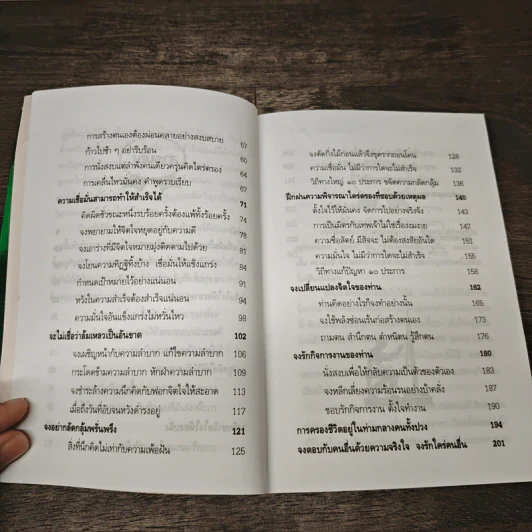 การสร้างตนเองต้องผ่อนคลายอย่างสงบสบาย 57
ก้าวไปช้า ๆ อย่ารีบร้อน 60
การนั่งสงบแต่ลำพังคนเดียวครุ่นคิดไตร่ตรอง 64
การเคลื่อนไหวมั่นคง คำพูดราบเรียบ 67
ความเชื่อมั่นสามารถทำให้สำเร็จได้ 71
คิดผิดชั่วขณะหนึ่งรบร้อยครั้งต้องแพ้ทั้งร้อยครั้ง 74
จงพยายามให้จิตใจหยุดอยู่กับความดี 78
จงเอาร่างที่มีจิตใจหมายมุ่งติดตามไปด้วย 81
จงโยนความทิฏฐิทิ้งบ้าง เชื่อมั่นให้แข็งแกร่ง 84
กำหนดเป้าหมายไว้อย่างแน่นอน 91
หวังในความสำเร็จต้องสำเร็จแน่นอน 94
ความมั่นใจอันแข็งแกร่งไม่หวั่นไหว 98
จะไม่เชื่อว่าล้มเหลวเป็นอันขาด 102
จงเผชิญหน้ากับความลำบาก แก้ไขความลำบาก 106
กระโดดข้ามความลำบาก หักฝ่าความลำบาก 109
จงชำระล้างความนึกคิดกับฟอกจิตใจให้สะอาด 113
เมื่อถึงวันที่อับจนหวังดำรงอยู่ 117
จงอย่าอัดกลุ้มพรั่นพรึ่ง 121
สิ่งที่นึกคิดไม่เท่ากับความเพ้อฝัน 125
จงตัดกิ่งไม้ก่อนแล้วจึงขุดรากถอนโคน 128
ความเชื่อมั่น ไม่มีว่าการใดจะไม่สำเร็จ 132
วิถีทางใหญ่ ๑๐ ประการ ขจัดความกลัดกลุ้ม 136
ฝึกฝนความพิจารณาไตร่ตรองที่ชอบด้วยเหตุผล 140
ตั้งใจไว้ให้มั่นคง จัดการไปอย่างจริงจัง 143
การเป็นมิตรกับเทพเจ้าไม่ใช่เรื่องงมงาย
ความซื่อสัตย์ มีสัจจะ ไม่ต้องสงสัยอันใด
ความมั่นใจ ไม่มีว่าการใดจะไม่สำเร็จ 155
วิถีทางแก้ปัญหา ๑๐ ประการ 158
จงเปลี่ยนแปลงจิตใจของท่าน 162
ท่านคิดอย่างไรก็จงทำอย่างนั้น 165
จงใช้พลังซ่อนเร้นก่อสร้างตนเอง 173
ถามตน สำนึกตน ตำหนิตน รู้สึกตน 176
จงรักกิจการงานของท่าน 180
นั่งสงบเพื่อให้กลับความเป็นตัวของตัวเอง 183
จงหลีกเลี่ยงความร้อนรนอย่างบ้าคลั่ง 187
ชอบรักกิจการงาน ตั้งใจทำงาน 190
การครองชีวิตอยู่ในท่ามกลางคนทั้งปวง 194
จงตอบกับคนอื่นด้วยความจริงใจ จงรักใคร่คนอื่น 201